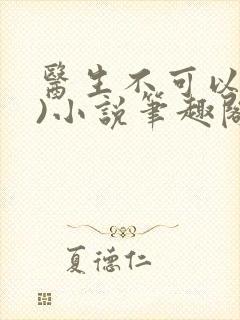 醫生不可以
)小說筆趣閣
夏德仁